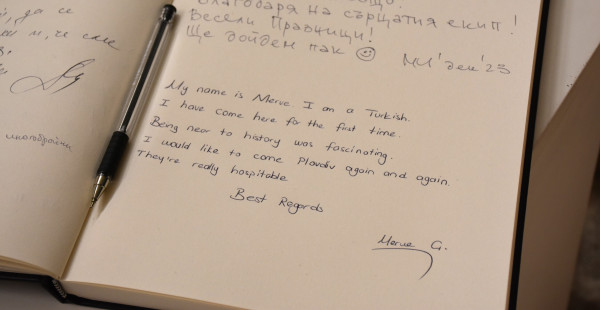 , да се
и м, че сме
многобройни
Благодаря на сърцатия екип!
Весели Празници!
Ще дойдем пак ☺
дек'23
My name is Merve I am a Turkish.
I have come here for the first time.
Beng near to history was fascinating.
I would like to come Plovdiv again and again.
They're really hospitable
Best Regards
Merve G.